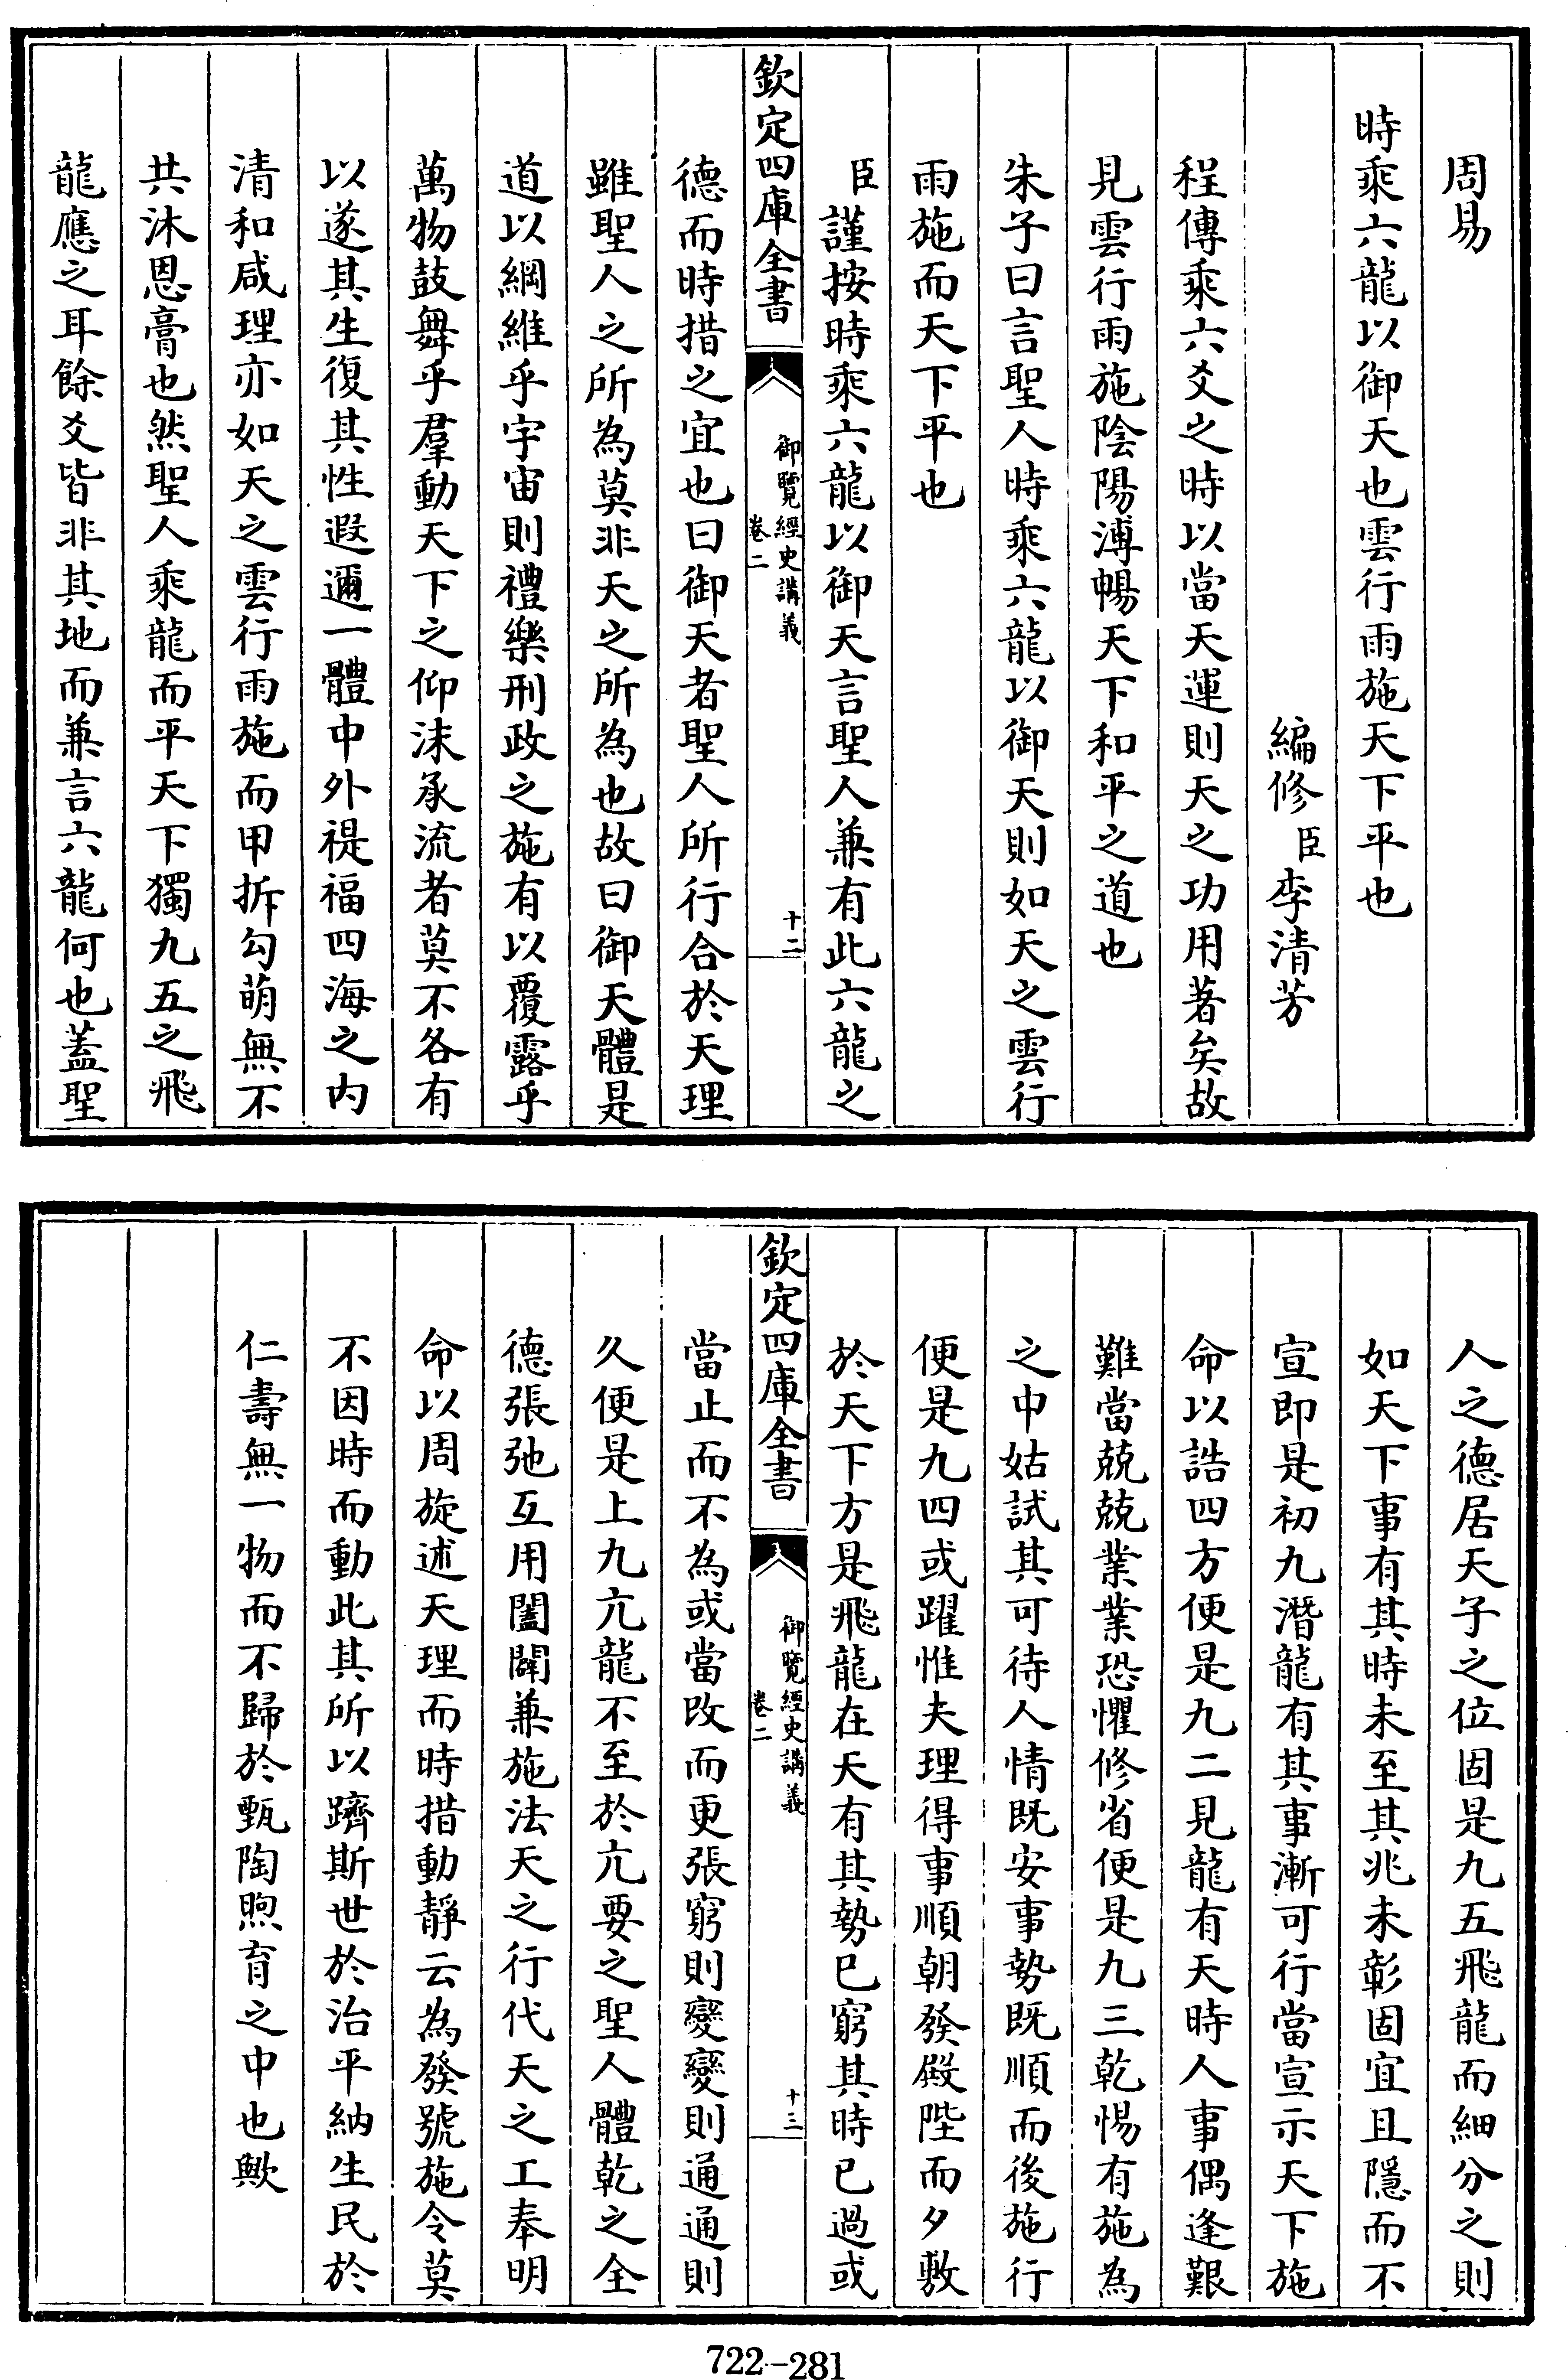 周易
時乘六龍以御天也雲行雨施天下平也
編修臣李清芳
程傳乘六爻之時以當天運則天之功用著矣故
見雲行雨施陰陽溥暢天下和平之道也
朱子曰言聖人時乘六龍以御天則如天之雲行
雨施而天下平也
臣謹按時乘六龍以御天言聖人兼有此六龍之
欽定四庫全書
御覽經史講義
卷二
十二
德而時措之宜也曰御天者聖人所行合於天理
雖聖人之所為莫非天之所為也故曰御天體是
道以綱維乎宇宙則禮樂刑政之施有以覆露乎
萬物鼓舞乎羣動天下之仰沫承流者莫不各有
以遂其生復其性遐邇一體中外禔福四海之内
清和咸理亦如天之雲行雨施而甲拆勾萌無不
共沐恩膏也然聖人乘龍而平天下獨九五之飛
龍應之耳餘爻皆非其地而兼言六龍何也蓋聖
人之德居天子之位固是九五飛龍而細分之則
如天下事有其時未至其兆未彰固宜且隱而不
宣即是初九潛龍有其事漸可行當宣示天下施
命以誥四方便是九二見龍有天時人事偶逢艱
難當兢兢業業恐懼修省便是九三乾惕有施為
之中姑試其可待人情既安事勢既順而後施行
便是九四或躍惟夫理得事順朝發殿陛而夕敷
於天下方是飛龍在天有其勢已窮其時已過或
欽定四庫全書
御覽經史講義
卷二
十三
當止而不為或當改而更張窮則變變則通通則
久便是上九亢龍不至於亢要之聖人體乾之全
德張弛互用闔闢兼施法天之行代天之工奉明
命以周旋述天理而時措動靜云為發號施令莫
不因時而動此其所以躋斯世於治平納生民於
仁壽無一物而不歸於甄陶煦育之中也歟
722-281